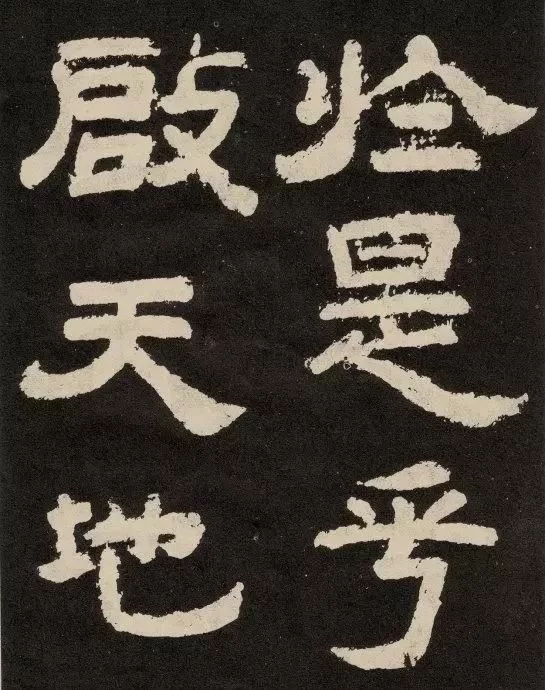 於是乎
啟天地